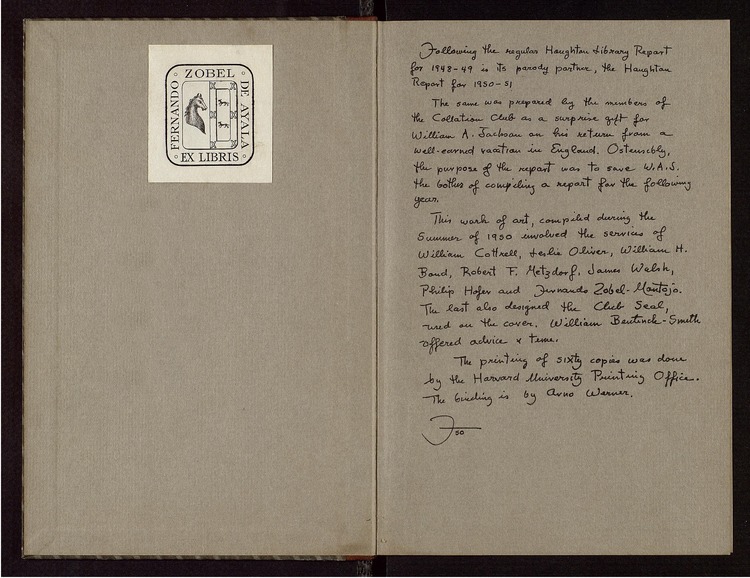 FERNANDO · ZOBEL · DE AYALA
· EX LIBRIS ·
Following the regular Houghton Library Report
for 1948-49 is its parody partner, the Houghton
Report for 1950-51
The same was prepared by the members of
the Collation Club as a surprise gift for
William A. Jackson on his return from a
well-earned vacation in England. Ostensibly,
the purpose of the report was to save W.A.J.
the bother of compiling a report for the following
year.
This work of art, compiled during the
Summer of 1950 involved the services of
William Cottrell, Leslie Oliver, William H.
Bond, Robert F. Metzdorf, James Walsh,
Philip Hofer and Fernando Zobel-Montojo.
The last also designed the Club Seal,
used on the cover. William Bentinck-Smith
offered advice & time.
The printing of sixty copies was done
by the Harvard University Printing Office.
The binding is by Arno Werner.
50